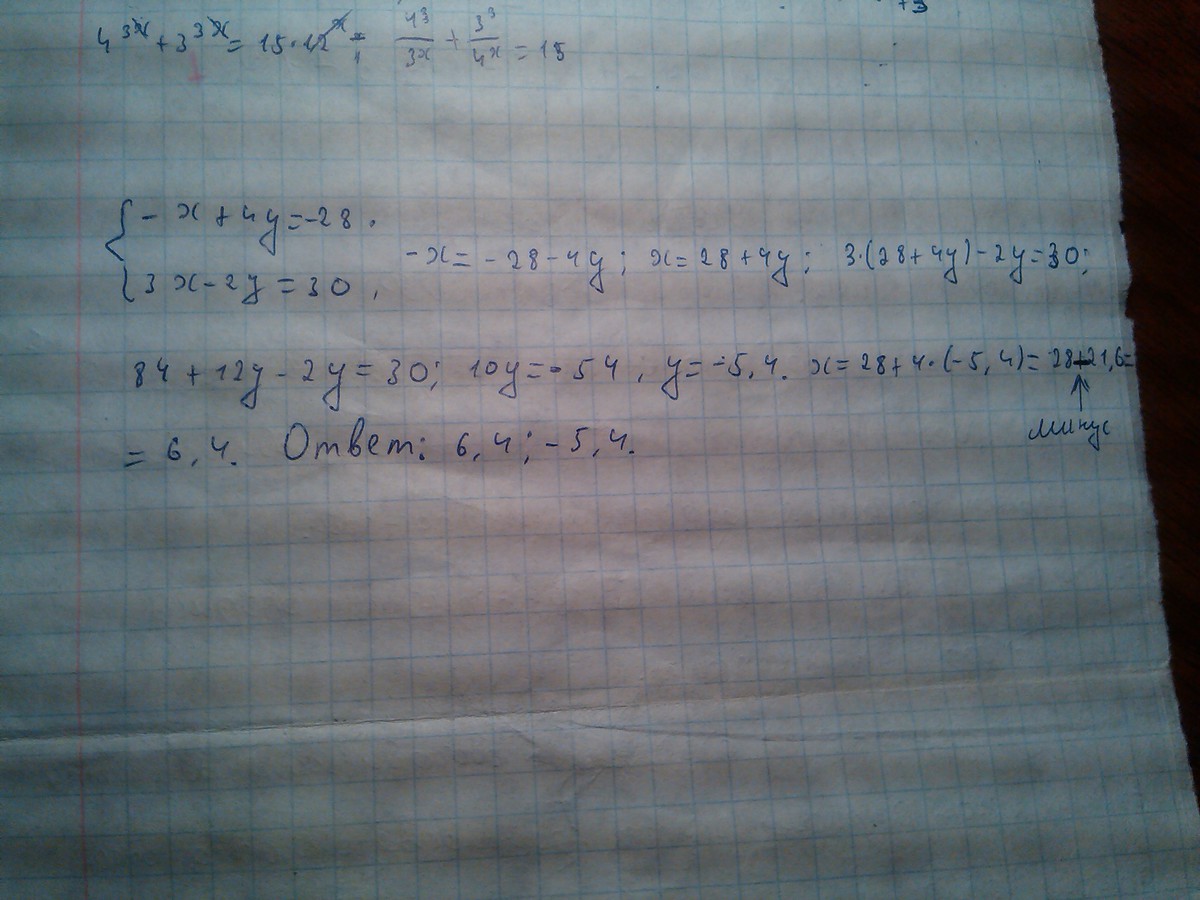 +3
4^3x + 3^3x = 15·12^x = ; 4^3/3^x + 3^3/4^x = 15
{ - x + 4y = -28.
3x - 2y = 30,
-x = -28 - 4y; x = 28 + 4y; 3·(28 + 4y) - 2y = 30;
84 + 12y - 2y = 30; 10y = -54, y = -5,4. x = 28 + 4·(-5,4) = 28-21,6=
минус
= 6,4. Ответ: 6,4; -5,4.